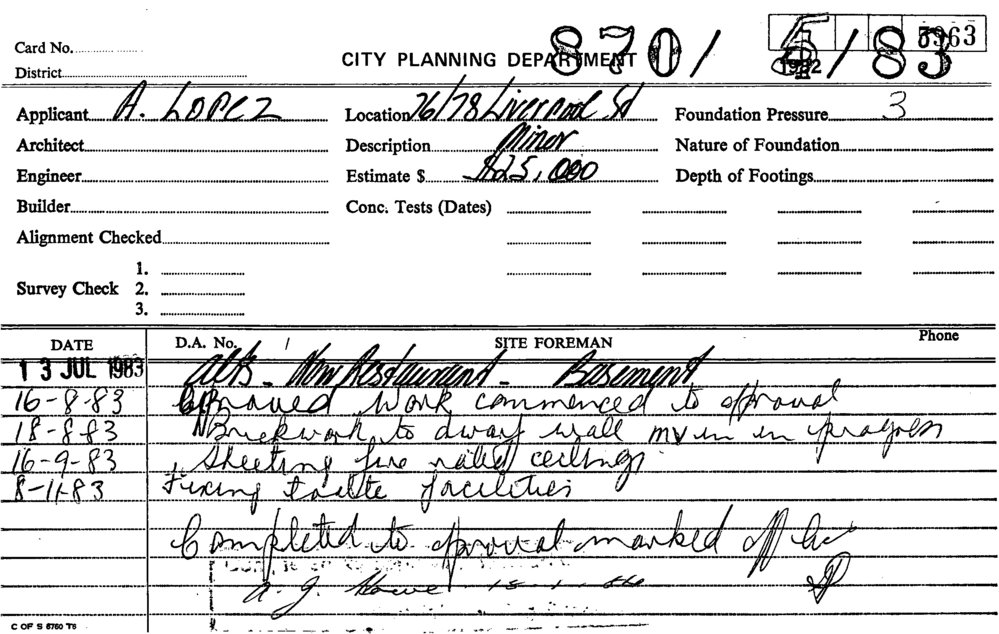 Card No.
5963
CITY PLANNING DEPARTMENT
870 / 5 / 83
1982
District
Applicant A. LOPEZ
Location 76/78 Liverpool St
Foundation Pressure 3
Architect
Description Minor
Nature of Foundation
Engineer
Estimate $ $25,000
Depth of Footings
Builder
Conc. Tests (Dates)
Alignment Checked
Survey Check 1.
2.
3.
DATE D.A. No. / SITE FOREMAN Phone
13 JUL 1983 Alts - New Restaurant - Basement
16-8-83 Approved Work commenced to approval
18-8-83 Brickwork to dwarf wall in progress
16-9-83 Sheeting fire rated ceilings
8-11-83 Fixing toilte facilities
Completed to approval marked off
A. J. Howe 18-1-84
C OF S 6760 T6